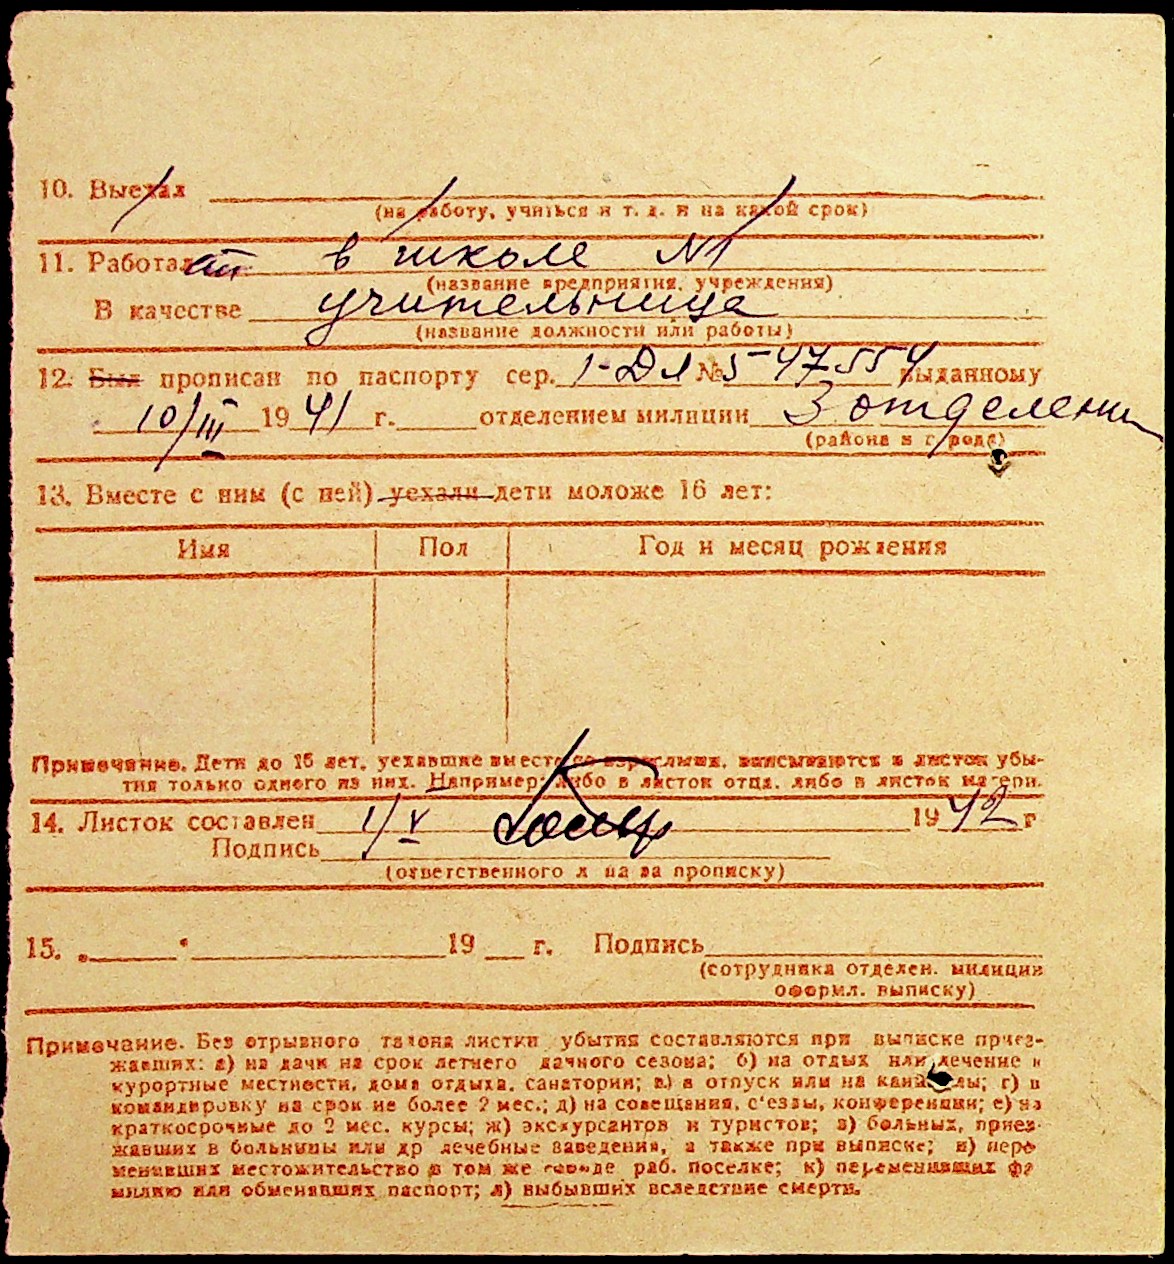 10. Выехал
(на работу, учиться и т. д. и на какой срок)
11. Работал в школе №1
(название предприятия, учреждения)
В качестве учительница
(название должности или работы)
12. Был прописан по паспорту сер. 1-ДЛ № 547554 выданному
10/III 1941 г. отделением милиции 3 отделени
(района и города)
13. Вместе с ним (с ней) уехали дети моложе 16 лет:
Имя Пол Год и месяц рождения
Примечание. Дети до 16 лет, уехавшие вместе со взрослыми, вписываются в листок убы-
тия только одного из них. Например: либо в листок отца, либо в листок матери.
14. Листок составлен 1/V 1942 г
Подпись
(ответственного лица за прописку)
15. „ “ 19 г. Подпись
(сотрудника отделен. милиции
оформл. выписку)
Примечание. Без отрывного талона листки убытия составляются при выписке приез-
жавших: а) на дачи на срок летнего дачного сезона; б) на отдых или лечение в
курортные местности, дома отдыха, санатории; в) в отпуск или на каникулы; г) в
командировку на срок не более 2 мес.; д) на совещания, с'езды, конференции; е) на
краткосрочные до 2 мес. курсы; ж) экскурсантов и туристов; з) больных, приез-
жавших в больницы или др лечебные заведения, а также при выписке; и) пере
менивших местожительство в том же городе раб. поселке; к) переменивших фа
милию или обменявших паспорт; л) выбывших вследствие смерти.